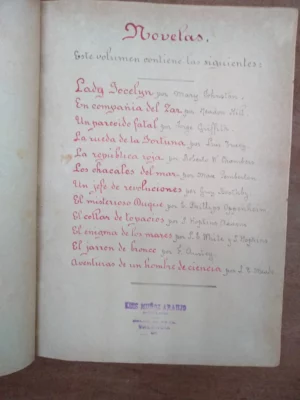 Novelas.
Este volumen contiene las siguientes:
Lady Jocelyn por Mary Johnston.
En compañía del Zar por Headon Hill
Un parecido fatal por Jorge Griffith.
La rueda de la Fortuna por Luis Tracy.
La república roja por Roberto W. Chambers
Los chacales del mar por Max Pemberton
Un jefe de revoluciones por Guy Boothby
El misterioso Duque por E. Phillips Oppenheim
El collar de topacios por J.
El enigma de los mares por L. T. Meade y J. Hopkins
El jarrón de bronce por F.
Aventuras de un hombre de ciencia por L. T. Meade
LUIS MUÑOZ ARAUJO